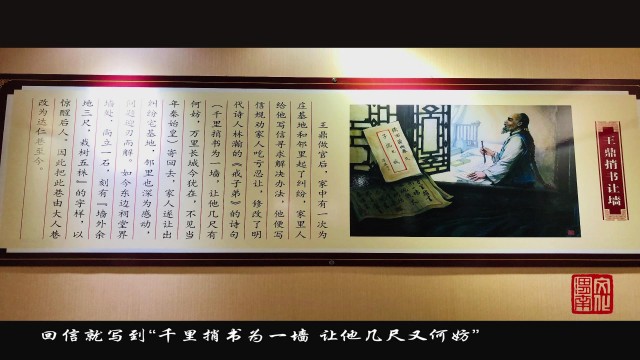 王鼎捎书让墙
王鼎做官后，家中有一次为
庄基地和邻里起了纠纷，家里人
给他写信寻求解决办法，他便写
信规劝家人吃亏忍让，修改了明
代诗人林瀚的《戒子弟》的诗句
（千里捎书为一墙，让他几尺有
何妨，万里长城今犹在，不见当
年秦始皇）寄回去，家人遂让出
纠纷宅基地，邻里也深为感动，
问题迎刃而解。如今东边祠堂界
墙处，尚立一石，刻有『墙外余
地三尺，栽树五株』的字样，以
惊醒后人，因此把此巷由大人巷
改为达仁巷至今。
文化
回信就写到“千里捎书为一墙 让他几尺又何妨”